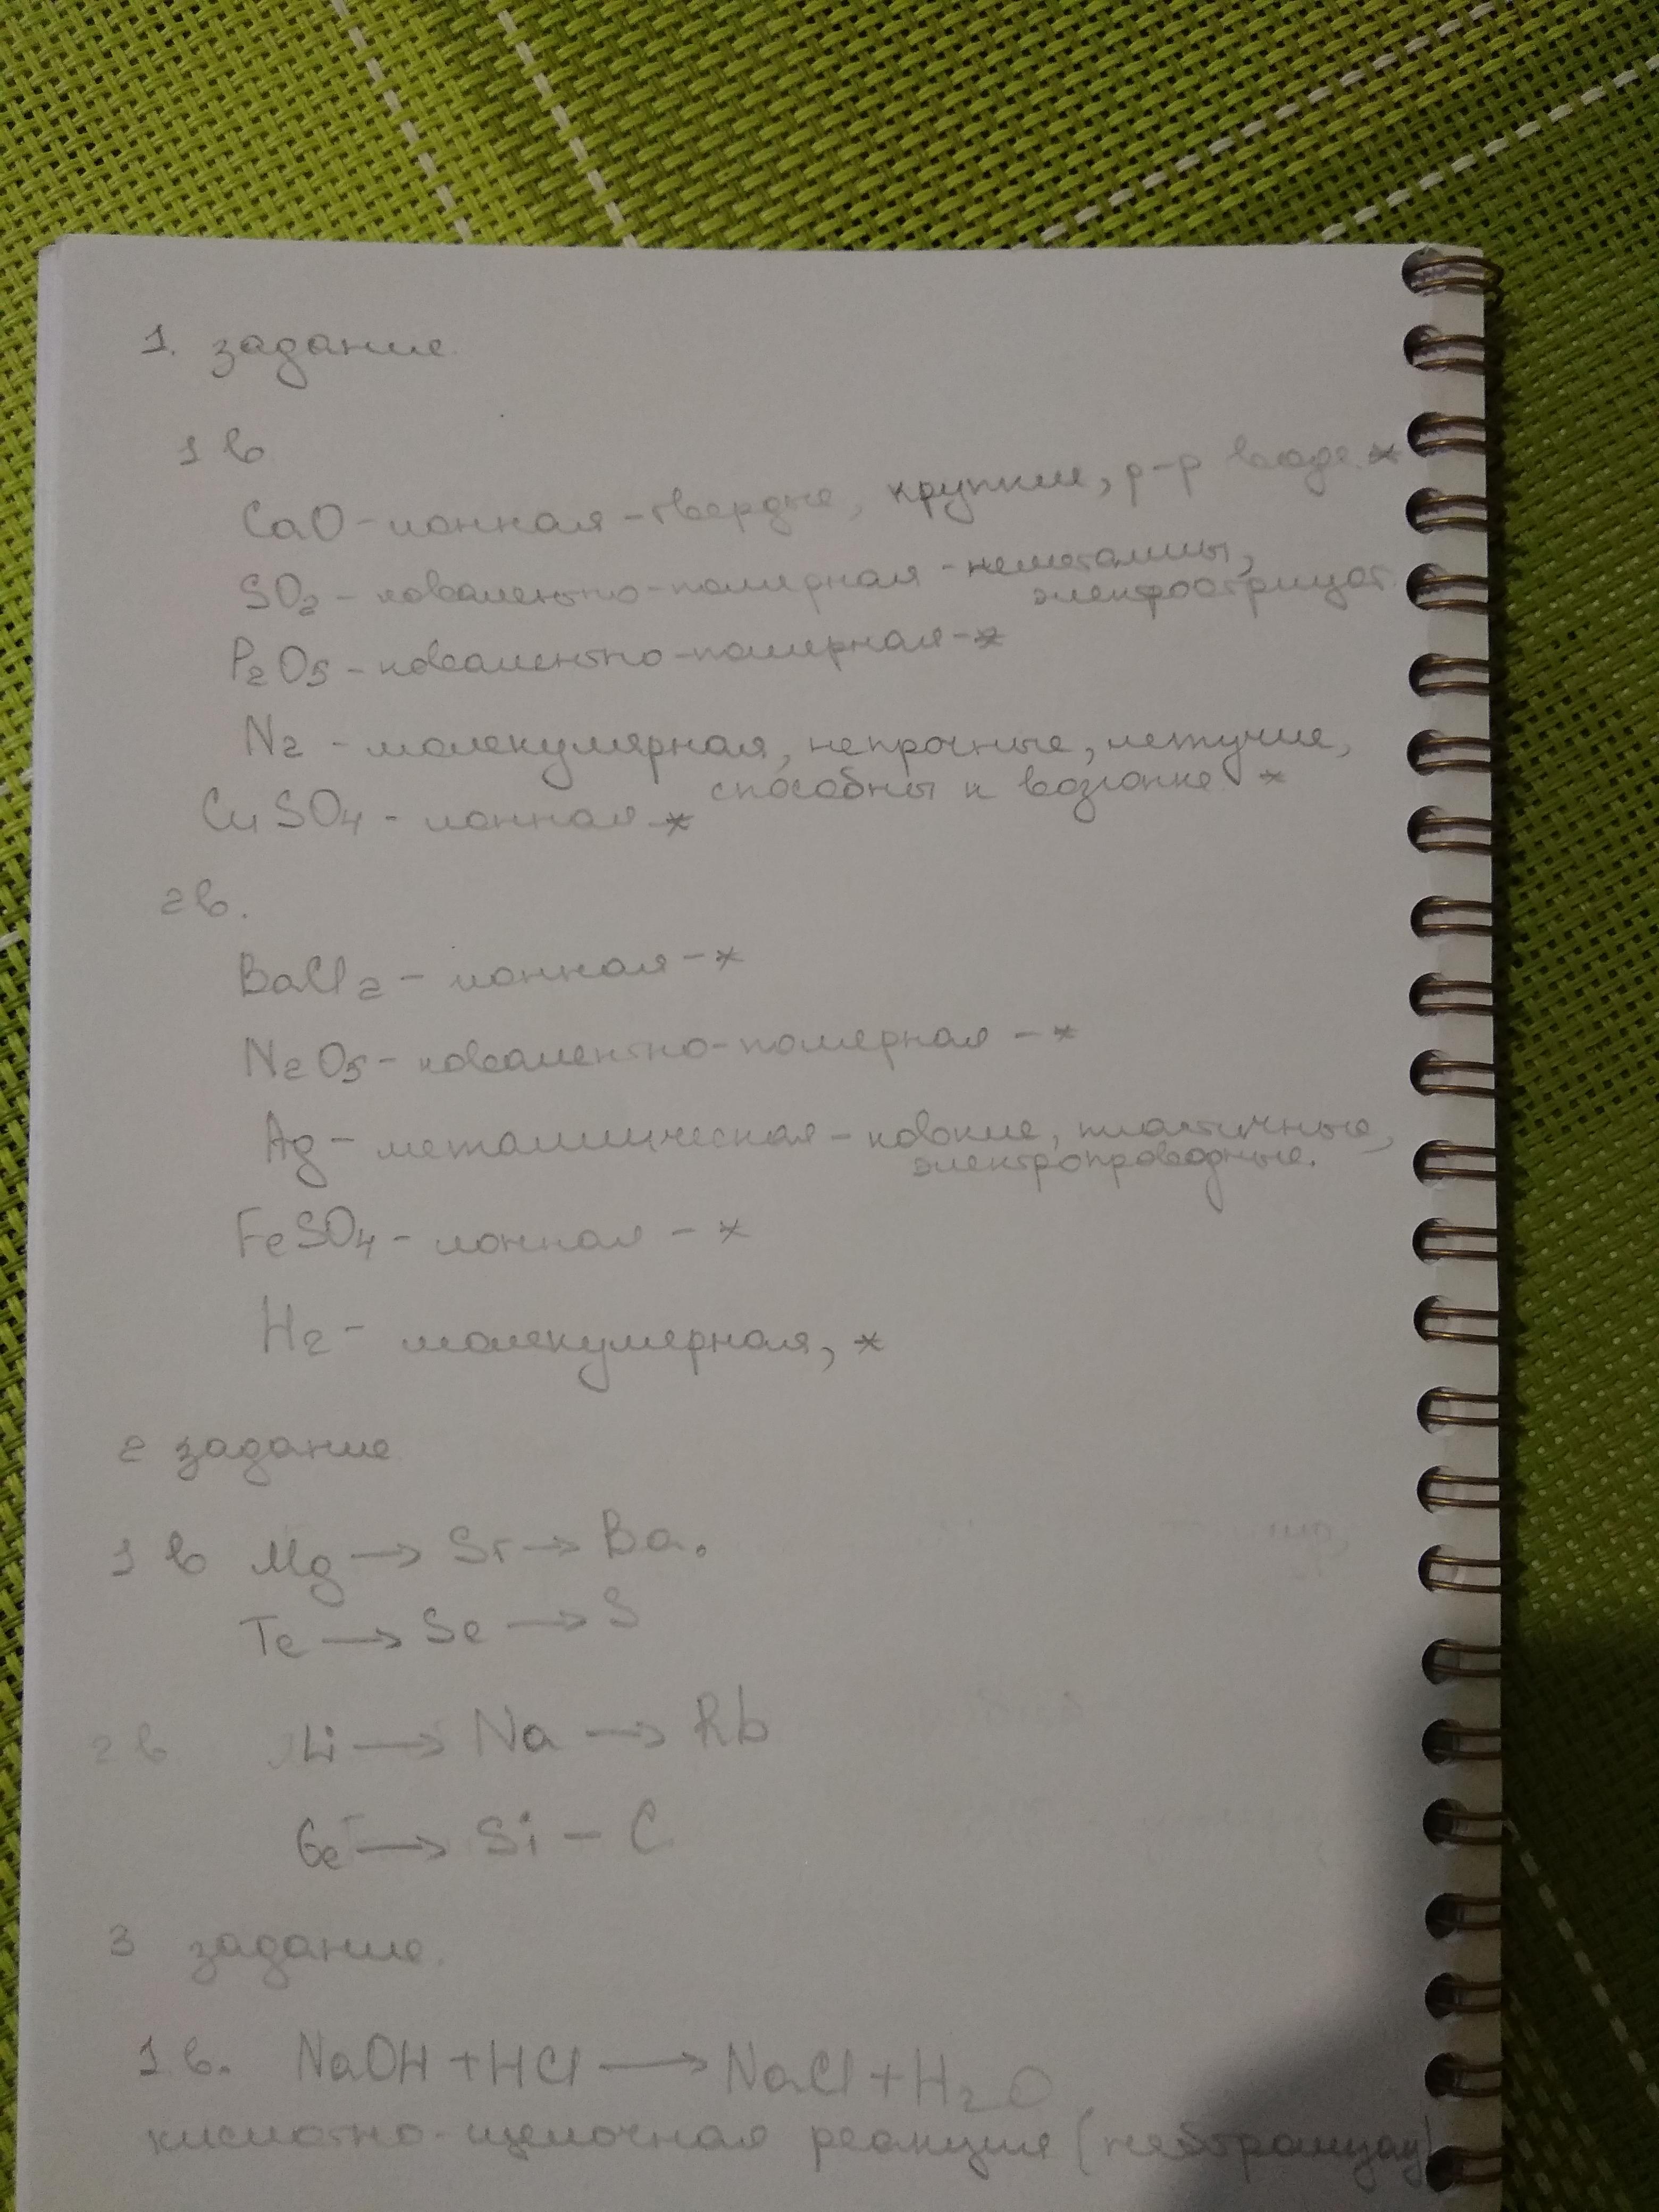 1. задание.
1 в
CaO - ионная - твердые, хрупкие, р-р в воде *
SO2 - ковалентно-полярная - неметаллы,
электроотрицат.
P2O5 - ковалентно-полярная - *
N2 - молекулярная, непрочные, летучие,
способны к возгонке *
CuSO4 - ионная *
2 в.
BaCl2 - ионная - *
N2O5 - ковалентно-полярная - *
Ag - металлическая - ковкие, пластичные,
электропроводные.
FeSO4 - ионная - *
H2 - молекулярная, *
2 задание
1 в Mg → Sr → Ba.
Te → Se → S
2 в Li → Na → Rb
Ge → Si - C
3 задание.
1 в. NaOH + HCl → NaCl + H2O
кислотно-щелочная реакция (нейтрализац)